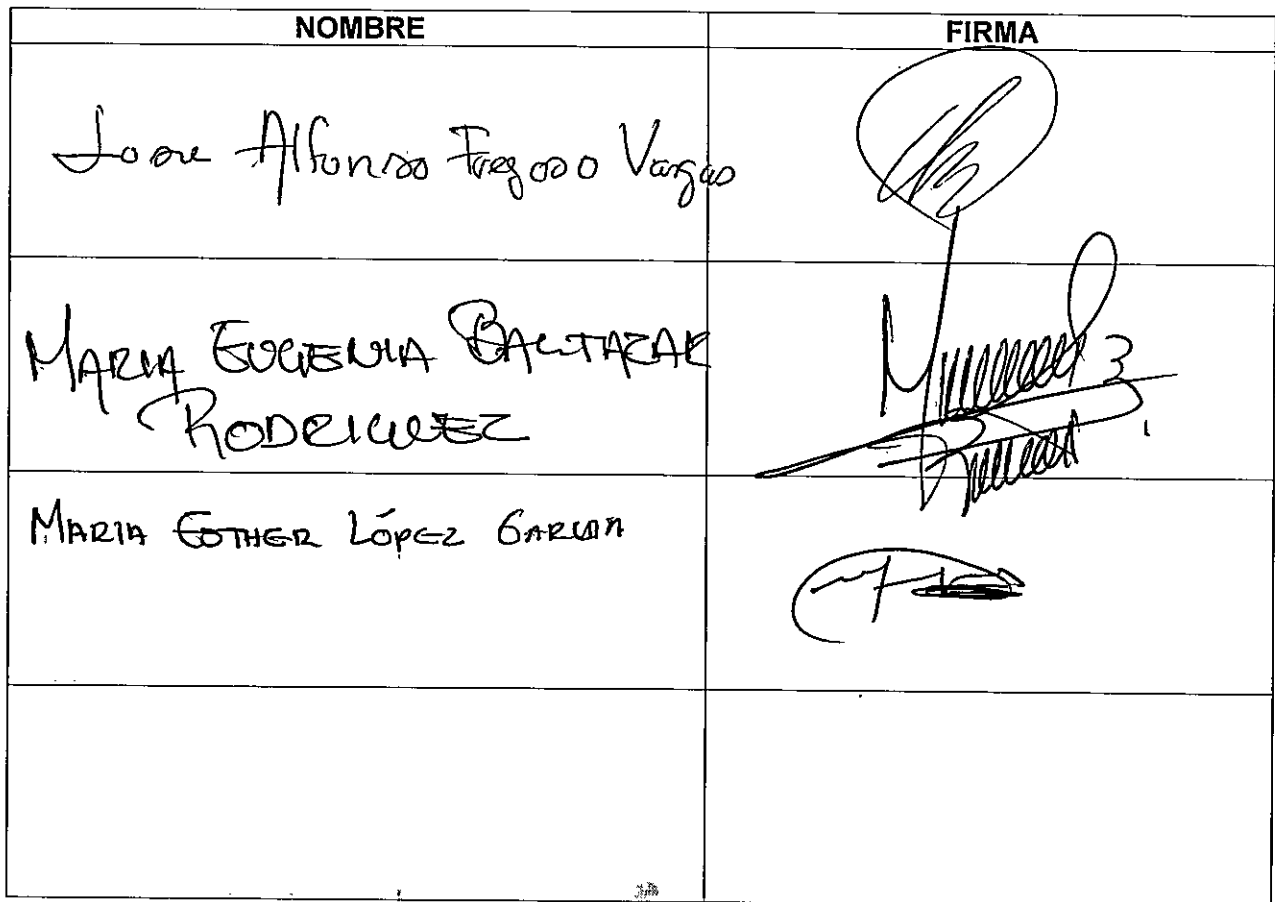 NOMBRE FIRMA
Jose Alfonso Fregoso Vargas
MARIA EUGENIA BALTAZAR
RODRIGUEZ
MARIA ESTHER LÓPEZ GARCIA